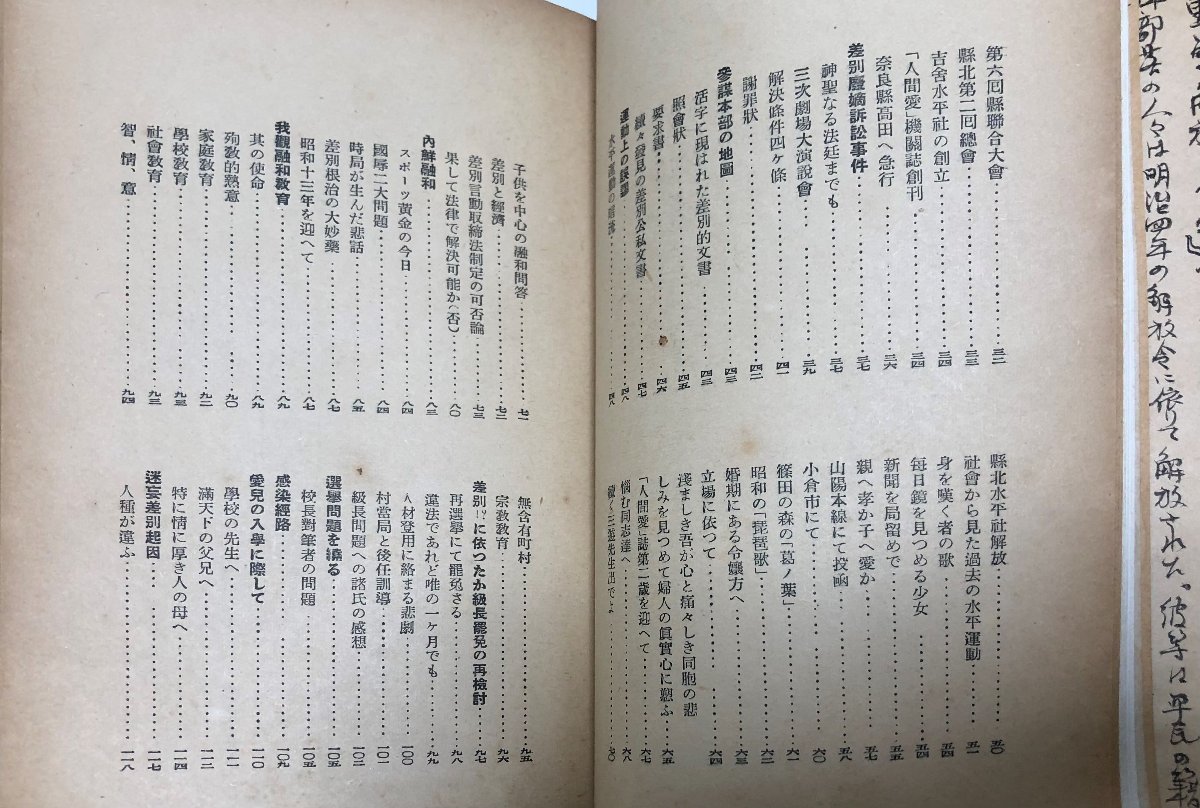 部共の人々は明治四年の解放令に依て解放された。彼等は平民の
第六回縣聯合大會……三二
縣北第二回總會……三三
吉舍水平社の創立……三四
「人間愛」機關誌創刊……三四
奈良縣高田へ急行……三六
差別廢嫡訴訟事件……三七
神聖なる法廷までも……三七
三次劇場大演說會……三九
解決條件四ヶ條……四一
謝罪狀……四二
參謀本部の地圖……四三
活字に現はれた差別的文書……四三
照會狀……四五
要求書……四六
續々發見の差別公私文書……四七
運動上の誤謬……四八
水平運動の……四八
縣北水平社解放……五〇
社會から見た過去の水平運動……五一
身を嘆く者の歌……五四
每日鏡を見つめる少女……五四
新聞を局留めで……五五
親へ孝か子へ愛か……五七
山陽本線にて投函……五八
小倉市にて……六〇
篠田の森の「葛ノ葉」……六一
昭和の「琵琶歌」……六二
婚期にある令孃方へ……六三
立場に依つて……六四
淺ましき吾が心と痛々しき同胞の悲
しみを見つめて婦人の眞實心に愬ふ……六五
「人間愛」誌第二歲を迎へて……六七
惱む同志達へ……六八
先生出でよ……七〇
子供を中心の融和問答……七一
差別と經濟……七二
差別言動取締法制定の可否論……七三
果して法律で解決可能か(否)……八〇
內鮮融和……八三
スポーツ黃金の今日……八四
國辱二大問題……八四
時局が生んだ悲話……八五
差別根治の大妙藥……八七
昭和十三年を迎へて……八七
我觀融和敎育……八九
其の使命……八九
殉敎的熱意……九〇
家庭敎育……九二
學校敎育……九三
社會敎育……九三
智、情、意……九四
無舍有町村……九五
宗敎敎育……九六
差別!!に依つたか級長罷免の再檢討……九七
再選擧にて罷免さる……九八
違法であれど唯の一ヶ月でも……九九
人材登用に絡まる悲劇……一〇〇
村當局と後任訓導……一〇一
級長問題への諸氏の感想……一〇二
選擧問題を繞る……一〇五
校長對筆者の問題……一〇五
感染經路……一〇九
愛兒の入學に際して……一一〇
學校の先生へ……一一一
滿天下の父兄へ……一一二
特に情に厚き人の母へ……一一四
迷妄差別起因……一一七
人種が違ふ……一一八